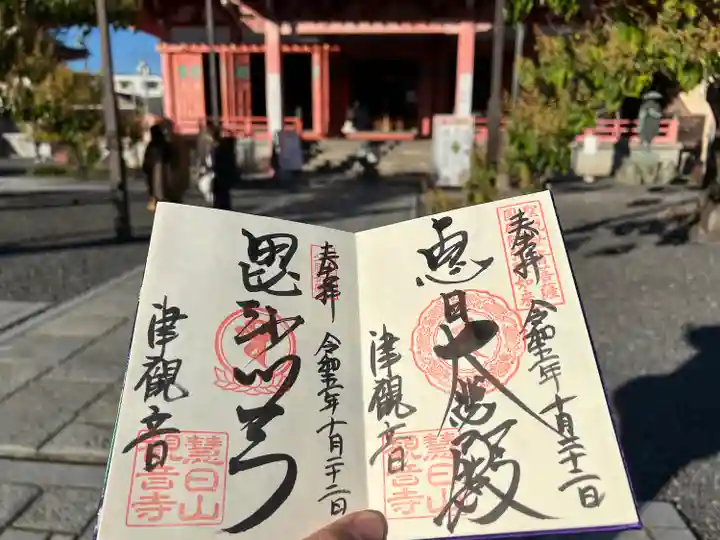 奉拝
令和五年十月二十二日
恵日大悲殿
津觀音
慧日山
觀音寺
奉拝
令和五年十月二十二日
毘沙門天
津觀音
慧日山
觀音寺